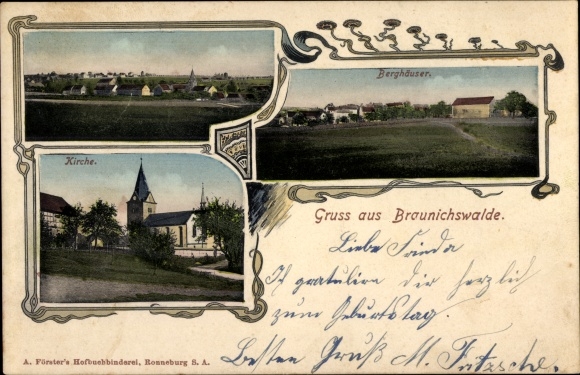 Berghäuser.
Kirche.
Gruss aus Braunichswalde.
Liebe Frieda
Ich gratuliere Dir herzlich
zum Geburtstag.
Besten Gruß M. Fritzsche.
A. Förster's Hofbuchbinderei, Ronneburg S. A.